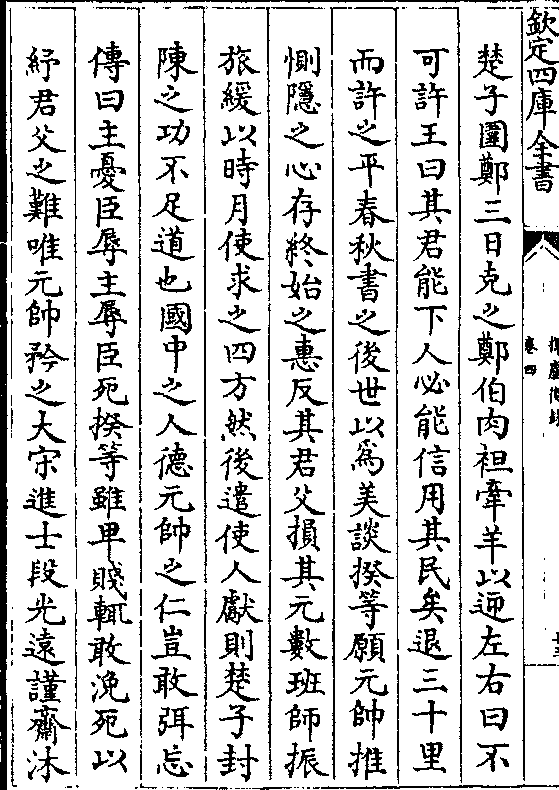 欽定四庫全書
卷四
楚子圍鄭三日克之鄭伯肉袒牽羊以迎左右曰不
可許王曰其君能下人必能信用其民矣退三十里
而許之平春秋書之後世以為美談揆等願元帥推
惻隱之心存終始之惠反其君父損其元數班師振
旅緩以時月使求之四方然後遣使人獻則楚子封
陳之功不足道也國中之人德元帥之仁豈敢弭忘
傳曰主憂臣辱主辱臣死揆等雖卑賤輒敢浼死以
紓君父之難唯元帥矜之大宋進士段光遠謹齋沐